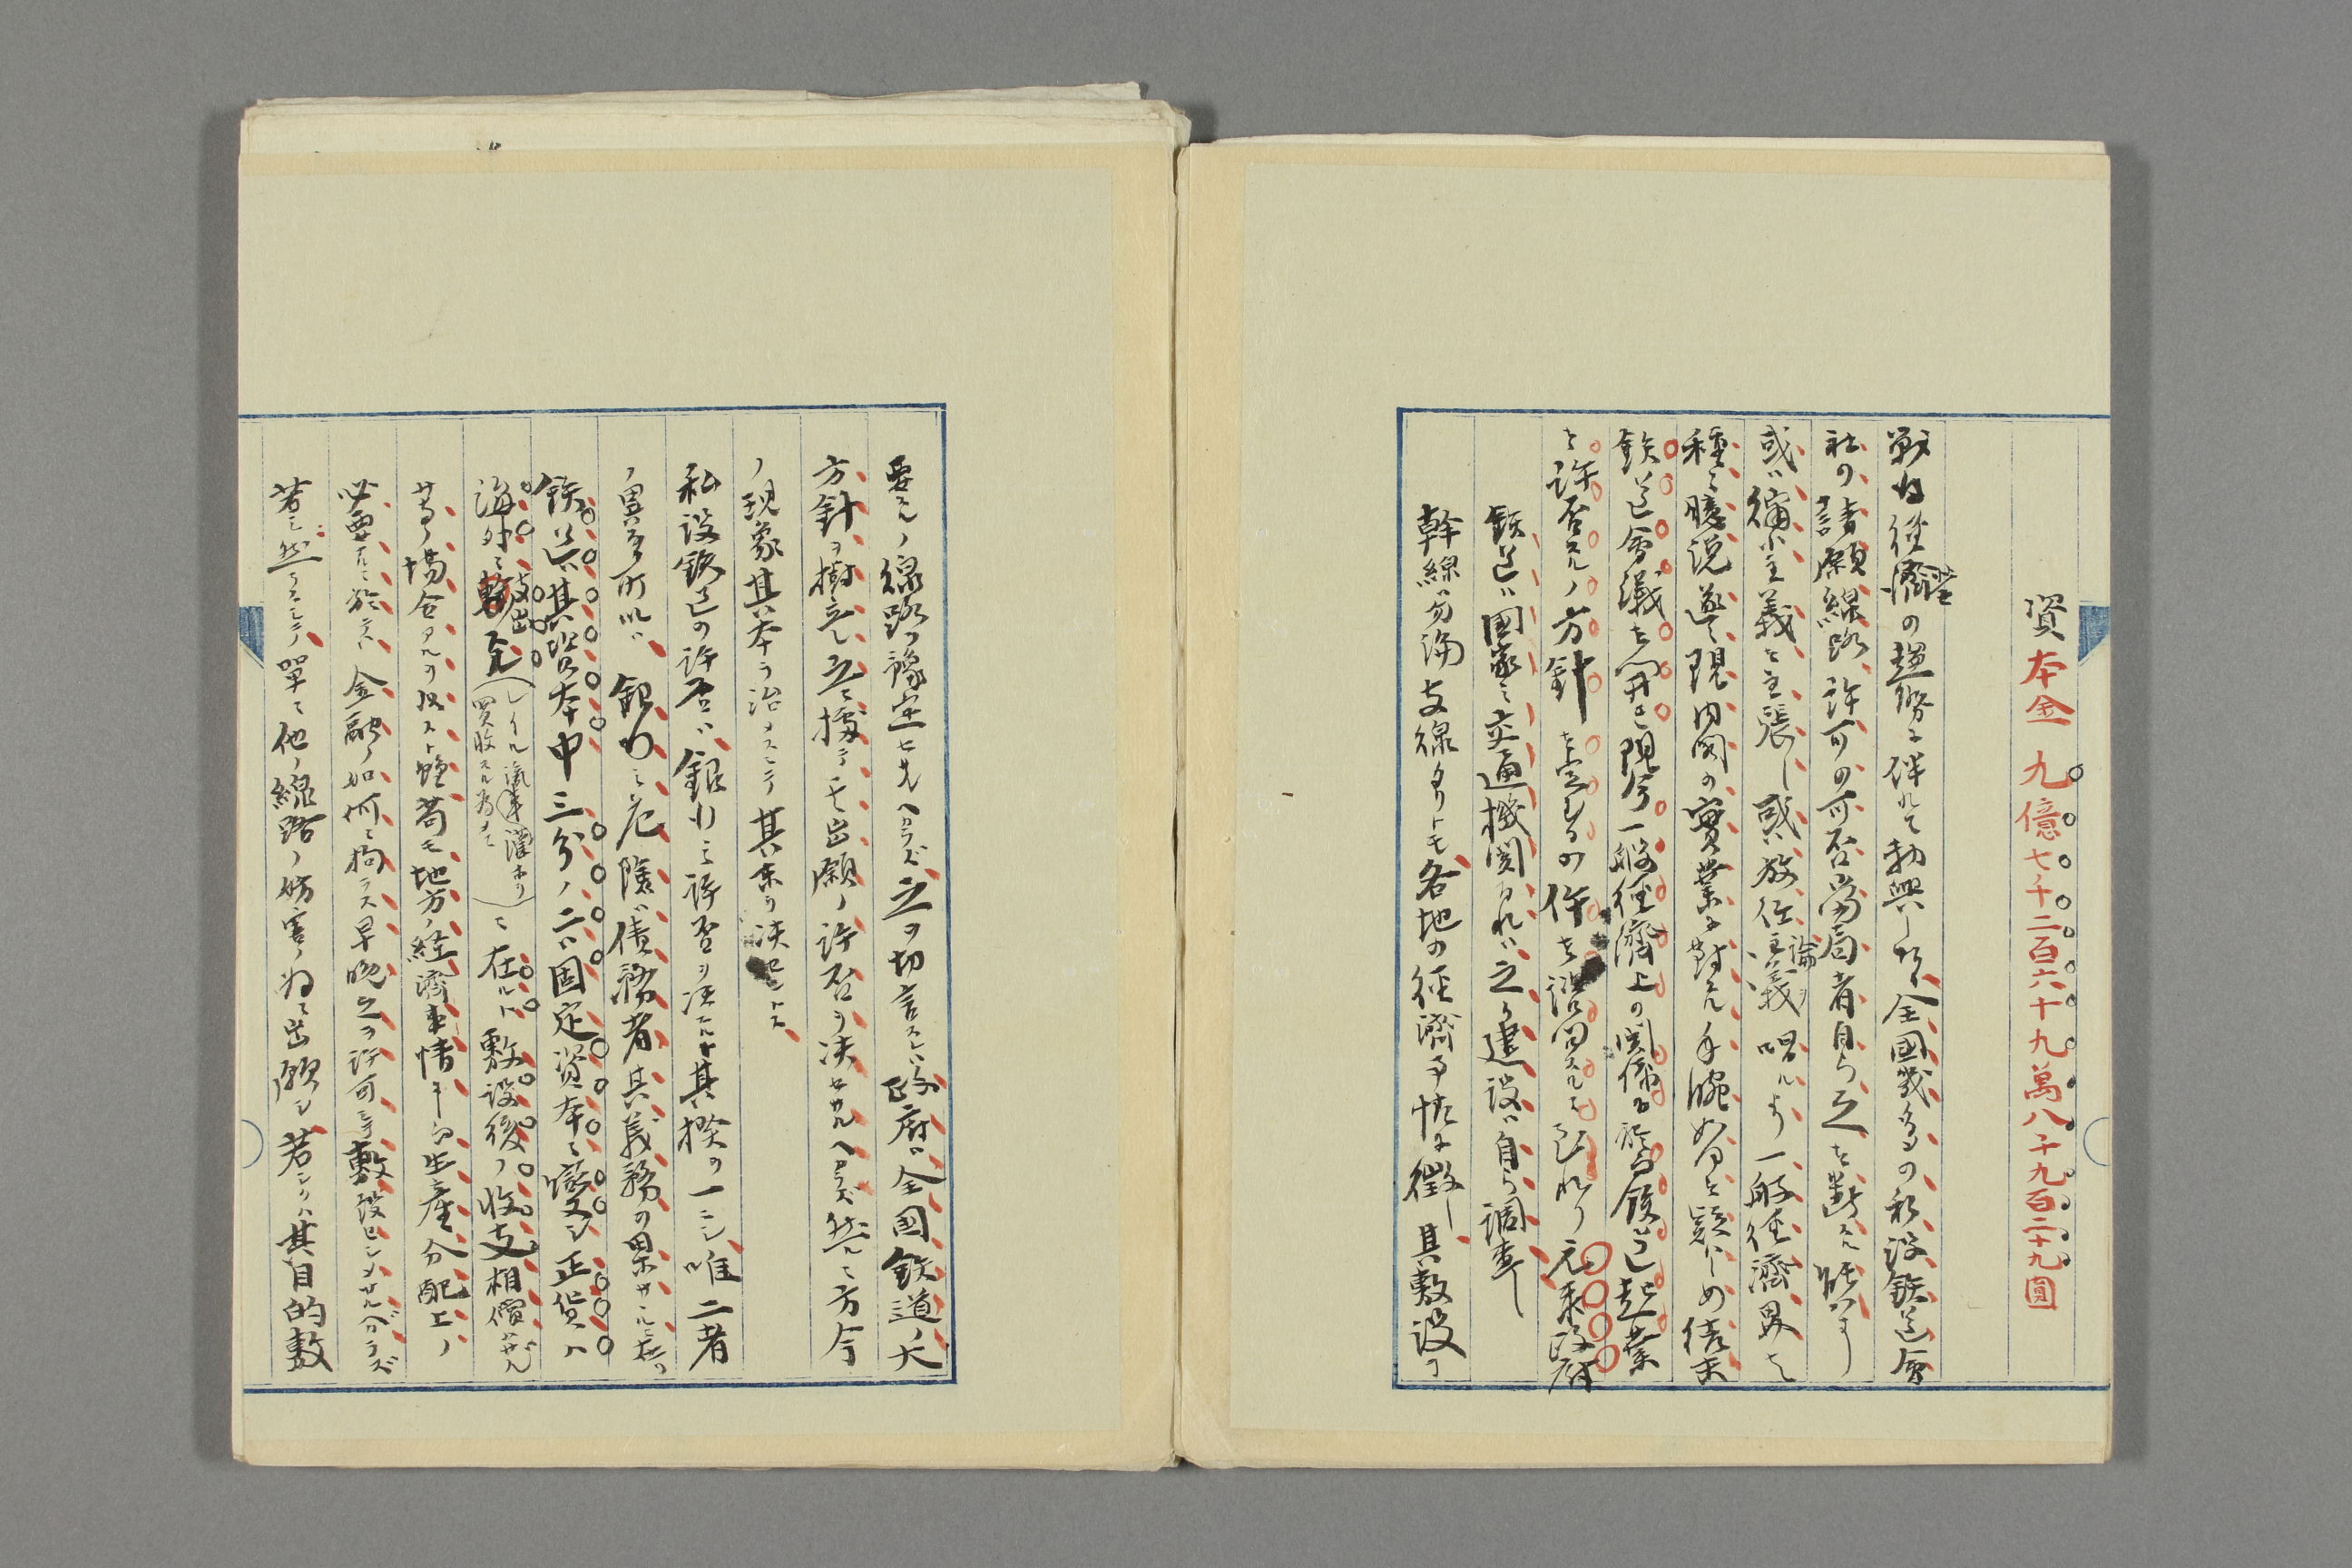 資本金 九億七千二百六十九萬八千九百二十九圓
戰後經營の趨勢に伴れて勃興し タル全國幾多の私設鉄道會
社の請願線路許可の可否當局者自ら之を斷スル能ハす
或ハ補小主義を主張し或ハ放任主義論ヲ唱ルより一般経濟界を
種々臆説遂て現内閣の實業に對スル手腕如何を疑ハしめ結末
鉄道會議を開き現今一般経濟上の関係に於る鉄道起業
を許否スルノ方針を定むるの件を諮問スルに到れり元来政府
鉄道ハ國家ノ交通機関なれハ之か建設ハ自ら調車し
幹線ハ勿論支線タリトモ各地の経濟事情に徴し其敷設ヲ
要スル線路ヲ豫定セサヘカラズ之ヲ切言スレハ政府ハ全國鉄道ノ大
方針ヲ樹立し之ニ據ラシモ出願ノ許否ヲ决セサルヘカラズ然ルニ方今
ノ現象其本ヲ治メスシテ其末ヲ决セントス
私設鉄道の許否ハ銀行ノ許否ヲ决スルト其揆の一ニシ唯二者
ノ異ル所以ハ銀行ノ危険ハ債務者其義務の果サルニ在リ
鉄道ハ其資本中三分ノ二ハ固定資本ニ變シ正貨ハ
海外ニ支出（レイル滊車滊本リ買收スル為メニ）ニ在ルト敷設後ノ收支相償ハサル
等ノ場合タルヲ以スト雖苟モ地方ノ経濟事情ヨリ生産分配上ノ
必要ナルニ於テハ金融ノ如何ニ拘ラス早晩之ヲ許可シ敷設セシメサルヘカラズ
若シ然ラスシテ單ニ他ノ線路ノ妨害ノ為ニ出願シ若シクハ其目的敷